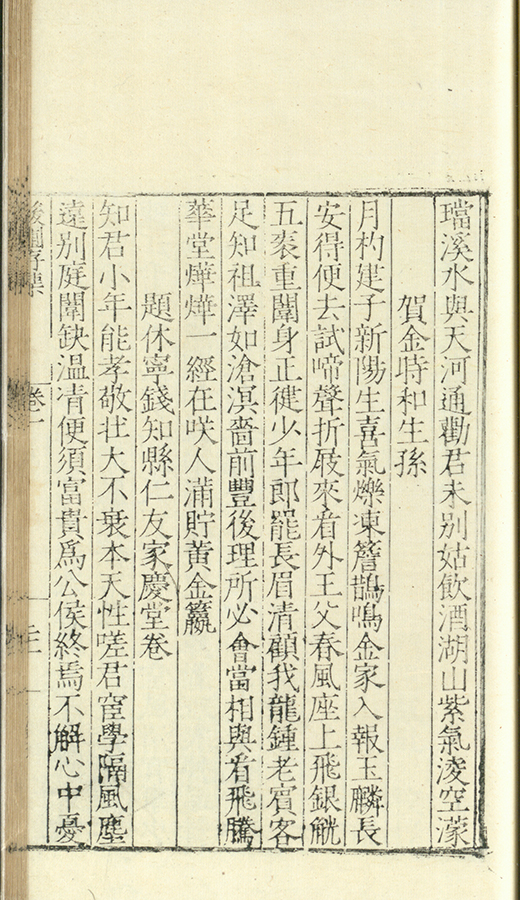 璫溪水與天河通勸君未别姑飲酒湖山紫氣凌空濛
賀金時和生孫
月杓建子新陽生喜氣爍凍簷鵲鳴金家入報玉麟長
安得便去試啼聲折屐來看外王父春風座上飛銀觥
五袠重闈身正徤少年郎罷長眉清顧我龍鍾老賓客
足知祖澤如滄溟嗇前豐後理所必會當相與看飛騰
華堂燁燁一經在咲人滿貯黄金籯
題休寧錢知縣仁友家慶堂卷
知君小年能孝敬壮大不衰本天性嗟君宦學隔風塵
遠别庭闈缺温清便須富貴爲公侯終焉不解心中憂
卷一